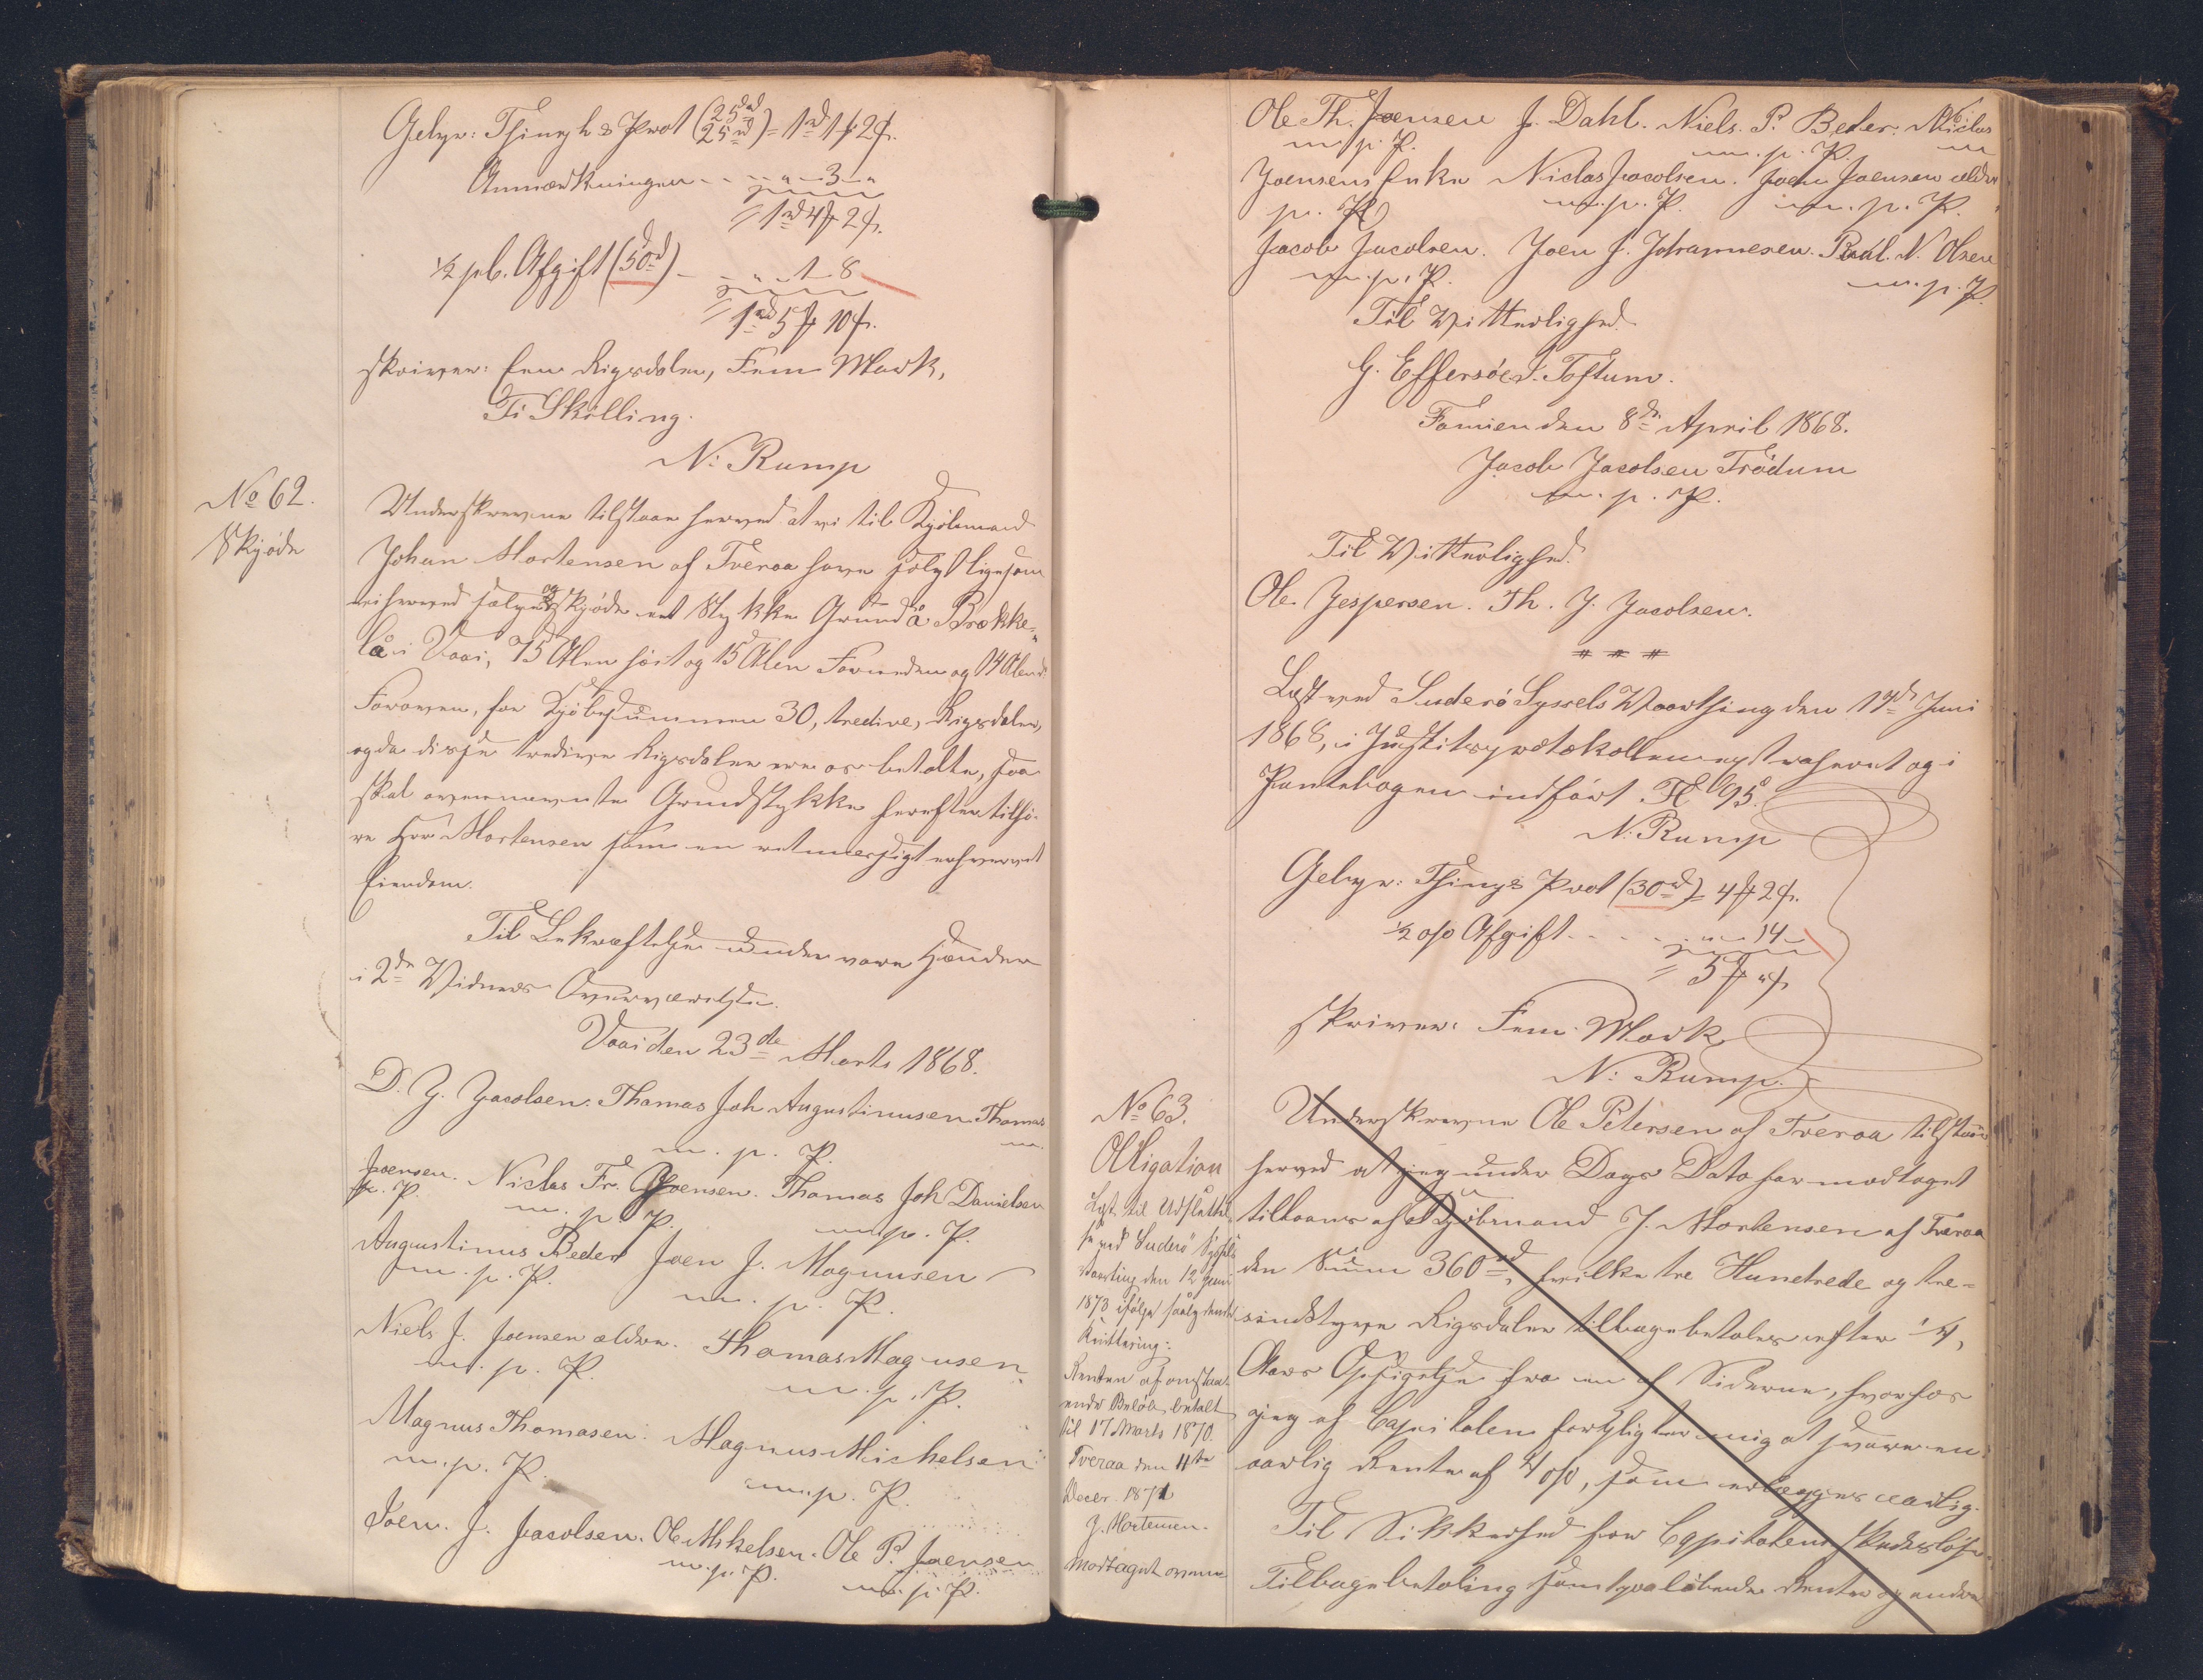 Gebyr: Thingl. & Prot (25rd 25rd) = 1rd 1 ₻ 2 ß.
Anmærkningen - - „ „ 3 „
= 1rd 4 ₻ 2 ß.
½ pC. Afgift (50rd) - - „ 1 8
= 1rd 5 ₻ 10 ß.
skriver: Een Rigsdaler, Fem Mark,
Ti Skilling.
N: Rump
No 62.
Skjøde
Underskrevne tilstaae herved at vi til Kjøbmand
Johan Mortensen af Tveraa have solgt ligesom
vi herved sælger og skjøde et Stykke Grund å Brække-
lå i Vaai, 75 Alen høit og 15 Alen Forneden og 14 Alen
Foroven, for Kjøbesummen 30, tredive, Rigsdaler,
og da disse tredive Rigsdaler ere os betalte, saa
skal ovennævnte Grundstykke herefter tilhø-
re Hrr. Mortensen som en retmæssigt erhvervet
Eiendom.
Til Bekræftelse under vore Hænder
i 2de Vidners Overværelse.
Vaai den 23de Marts 1868.
D. J. Jacobsen. Thomas Joh Augustinusen Thomas
m. p. P. m.
Joensen. Niclas Fr. Joensen. Thomas Joh Danielsen
p. P. m. p. P. m. p. P.
Augustinus Peder Joen J. Magnusen
m. p. P. m. p. P.
Niels J. Joensen ældre. Thomas Magnusen
m. p. P. m. p. P.
Magnus Thomasen. Magnus Michelsen
m. p. P. m. p. P.
Joen. J. Jacobsen. Ole Mikelsen. Ole P. Joensen
m. p. P. m. p. P.
Ole Th. Joensen J. Dahl. Niels. P. Beder. Niclas
m. p. P. m. p. P. m
Joensens Enke Niclas Jacobsen. Joen Joensen ældre
p. P. m. p. P. m. p. P.
Jacob Jacobsen. Joen J. Johannesen. Poul. N. Olsen
m. p. P. m. p. P.
Til Vitterlighed.
G. Effersöe J. Toftum.
Famien den 8de April 1868.
Jacob Jacobsen Trödum
m. p. P.
Til Vitterlighed.
Ole Jespersen. Th. J. Jacobsen.
# # #
Læst ved Suderø Syssels Vaarthing den 17de Juni
1868, i Justitsprotokollen extraheret og i
Pantebogen indført Fol 95.
N. Rump
Gebyr: Thing & Prot (30rd) = 4 ₻ 2 ß.
½ o/o Afgift - - - „ 14 „
= 5 ₻ „ ß.
skriver: Fem Mark
N: Rump.
No 63.
Obligation
Læst til Udslettel-
se ved Suderø Syssels
Vaarting den 12 Juni
1873 ifølge saalydende
Kvittering:
Renten af omstaa-
ende Beløb betalt
til 17 Marts 1870.
Tveraa den 11te
Decbr. 1871
J. Mortensen.
Modtaget oven-
Underskrevne Ole Petersen af Tveraa tilstaaer
herved at jeg under Dags Dato har modtaget
tillaans af Kjøbmand J. Mortensen af Tveraa
den Sum 360rd, hvilke tre Hundrede og tre-
sindstyve Rigsdaler tilbagebetales efter ¼
Aars Opsigelse fra en af Siderne, hvorhos
jeg af Capitalen forpligter mig at svare en
aarlig Rente af 4 o/o, som erlægges aarlig.
Til Sikkerhed for Capitalens skadesløse
Tilbagebetaling samt paaløbende Renter og andre